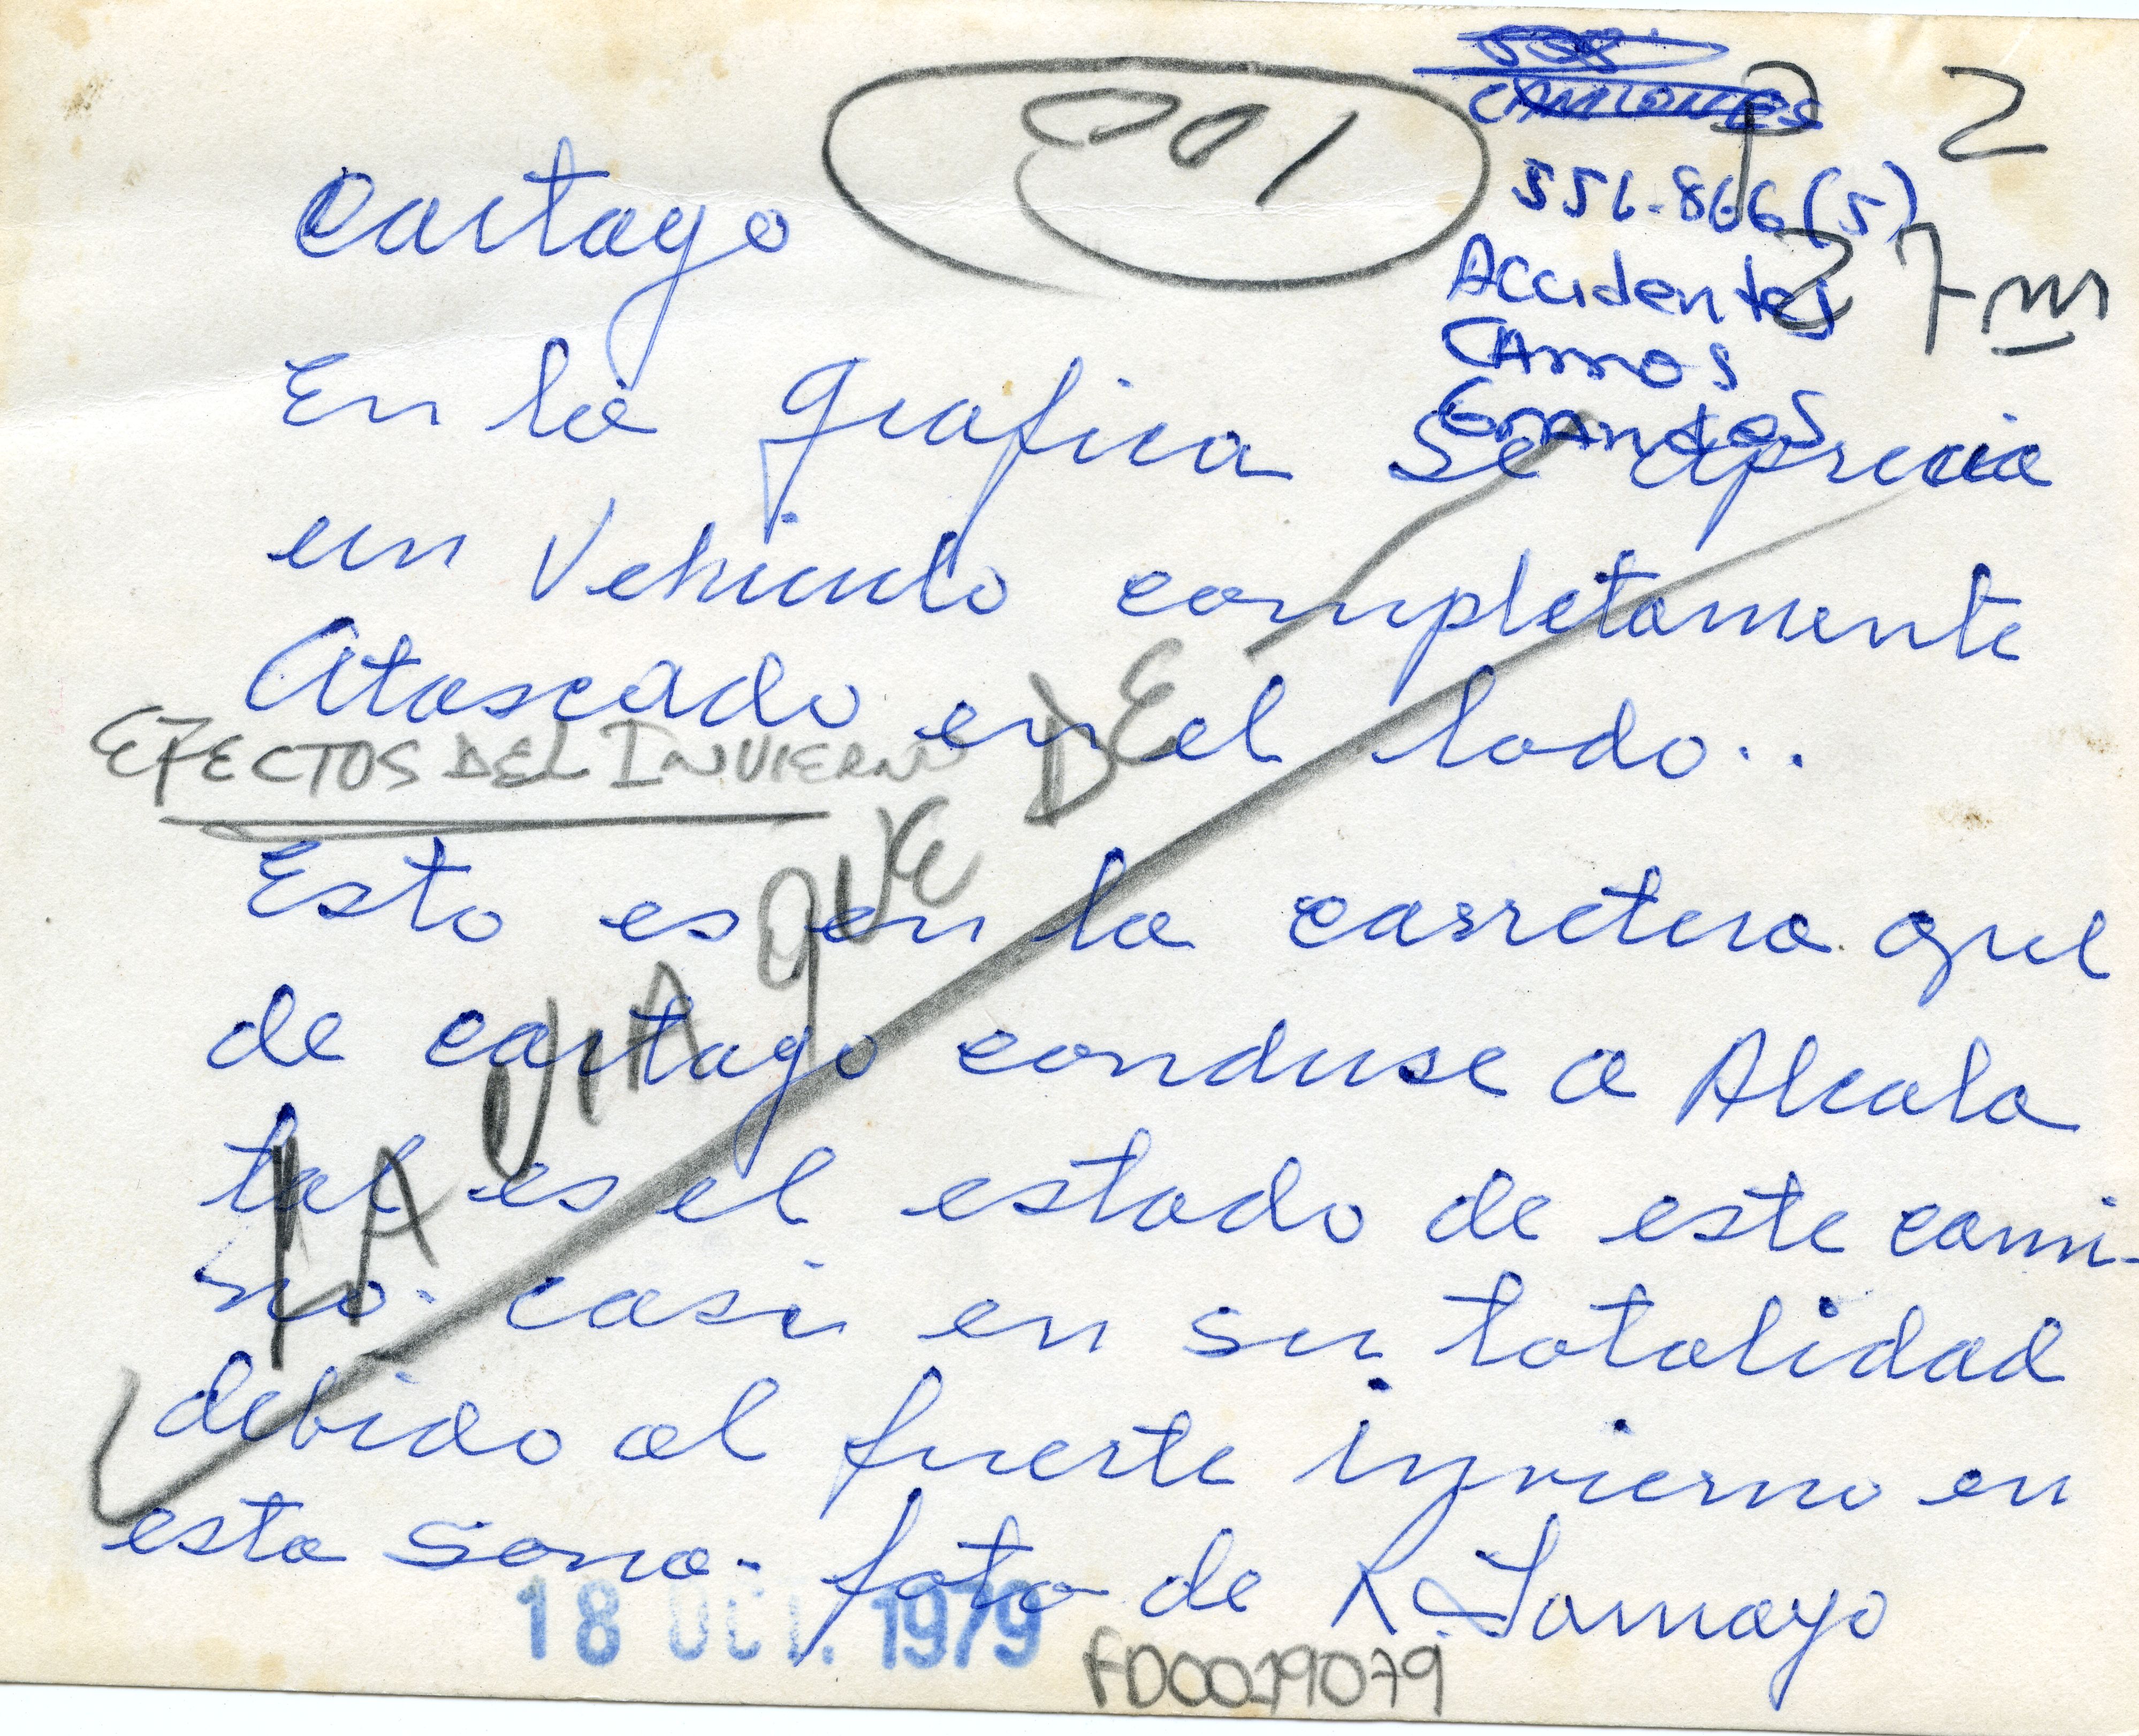 001
CAMIONES
2
551.866(5)
2 7 m
Accidentes
CArros
GrAndes
Cartago
En la grafica Se aprecia
un Vehiculo completamente
Atascado en el lodo..
EFECTOS DEL INVIERNO
Esto es en la carretera que
de cartago conduse a Alcala
tal es el estado de este cami-
no. casi en su totalidad
debido al fuerte invierno en
esta sona. foto de R. Tamayo
LA VIA QUE DE
18 OCT. 1979
FD0019079